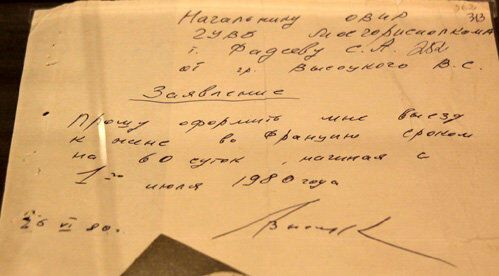 313
Начальнику ОВИР
ГУВД Мосгорисполкома
т. Фадееву С.А.
от гр. Высоцкого В.С.
Заявление
Прошу оформить мне выезд
к жене во Францию сроком
на 60 суток, начиная с
1го июля 1980 года
26 VI 80г.